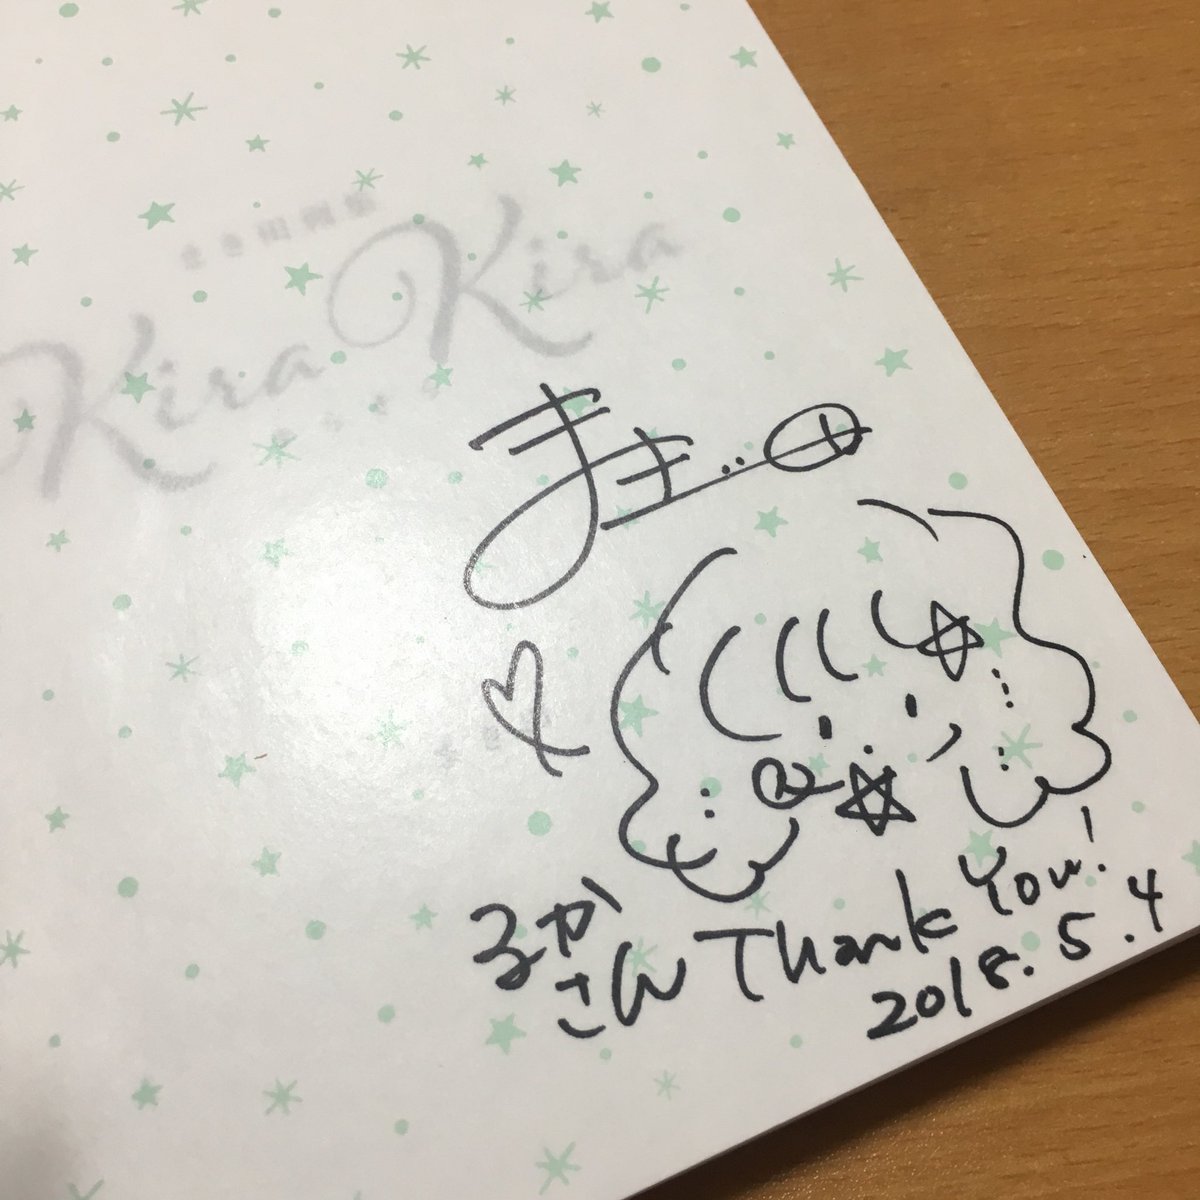 Kira Kira
まき
るか
さん Thank You!
2018.5.4